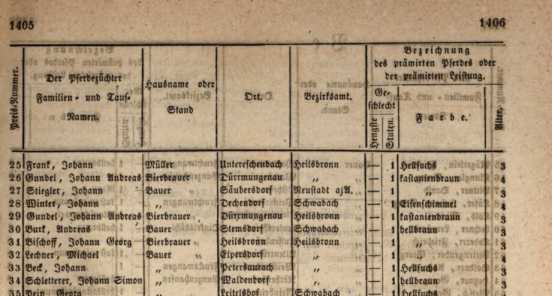 1405 1406
Preis-Nummer. Der Pferdezüchter Familien- und Tauf-Namen. Hausname oder Stand Ort. Bezirksamt. Bezeichnung des prämirten Pferdes oder der prämirten Leistung.
Geschlecht Hengste Stuten. Farbe. Alter.
25 Frank, Johann Müller Untereschenbach Heilsbronn — 1 Hellfuchs 3
26 Gundel, Johann Andreas Bierbrauer Dürrmungenau „ — 1 kastanienbraun 4
27 Stiegler, Johann Bauer Säubersdorf Neustadt a/A. — 1 „ 3
28 Winter, Johann „ Dechendorf Schwabach — 1 Eisenschimmel 4
29 Gundel, Johann Andreas Bierbrauer Dürrmungenau Heilsbronn — 1 kastanienbraun 3
30 Burk, Andreas Bauer Stemsdorf Schwabach — 1 hellbraun 3
31 Bischoff, Johann Georg Bierbrauer Heilsbronn Heilsbronn — 1 „
32 Lechner, Michael Bauer Elpersdorf „ — 1 „
33 Beck, Johann „ Petersaurach „ — 1 Hellfuchs
34 Schletterer, Johann Simon „ Waldendorf „ — 1 hellbraun
35 Georg Leitelshof Schwabach 1 Hellfuchs